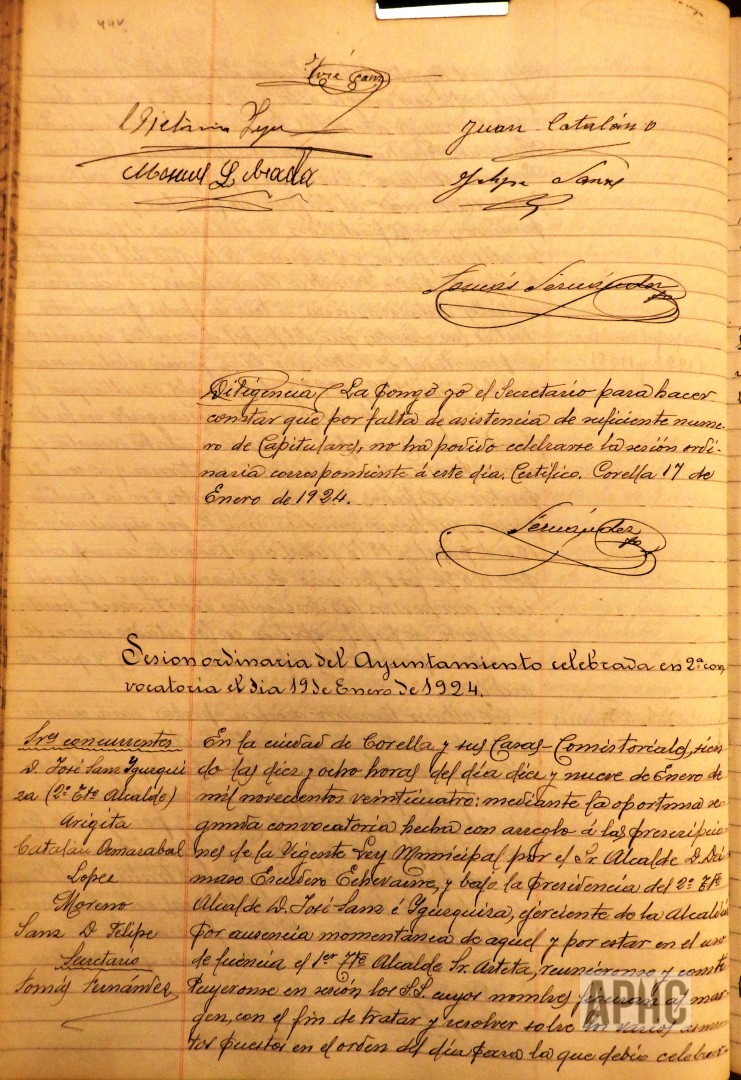 44v
José Sanz
Victorino
Juan Catalán
Manuel L.
Felipe Sanz
Tomás Fernández
Diligencia La pongo yo el Secretario para hacer
constar que por falta de asistencia de suficiente nume-
ro de Capitulares, no ha podido celebrarse la sesión ordi-
naria correspondiente á este dia. Certifico. Corella 17 de
Enero de 1924.
Fernández
Sesion ordinaria del Ayuntamiento celebrada en 2ª con-
vocatoria el dia 19 de Enero de 1924.
Sres concurrentes
D. José Sanz Ygúzqui
za (2º Tte Alcalde)
Arigita
Catalán Omarabal
Lopez
Moreno
Sanz D. Felipe
Secretario
Tomás Fernández
En la ciudad de Corella y sus Casas-Consistoriales, sien-
do las diez y ocho horas del día diez y nueve de Enero de
mil novecientos veinticuatro: mediante la oportuna se-
gunda convocatoria hecha con arreglo á las prescripcio-
nes de la Vigente Ley Municipal por el Sr. Alcalde D. Dá-
maso Escudero Echevarne, y bajo la presidencia del 2º Tte
Alcalde D. José Sanz é Ygúzquiza, ejerciente de la Alcaldía
por ausencia momentánea de aquel y por estar en el uso
de licencia el 1er Tte Alcalde Sr. Arteta, reuniéronse y consti-
tuyeronse en sesión los S.S. cuyos nombres figuran al mar-
gen, con el fin de tratar y resolver sobre los varios asun-
tos puestos en el orden del día para la que debió celebrar
APHC